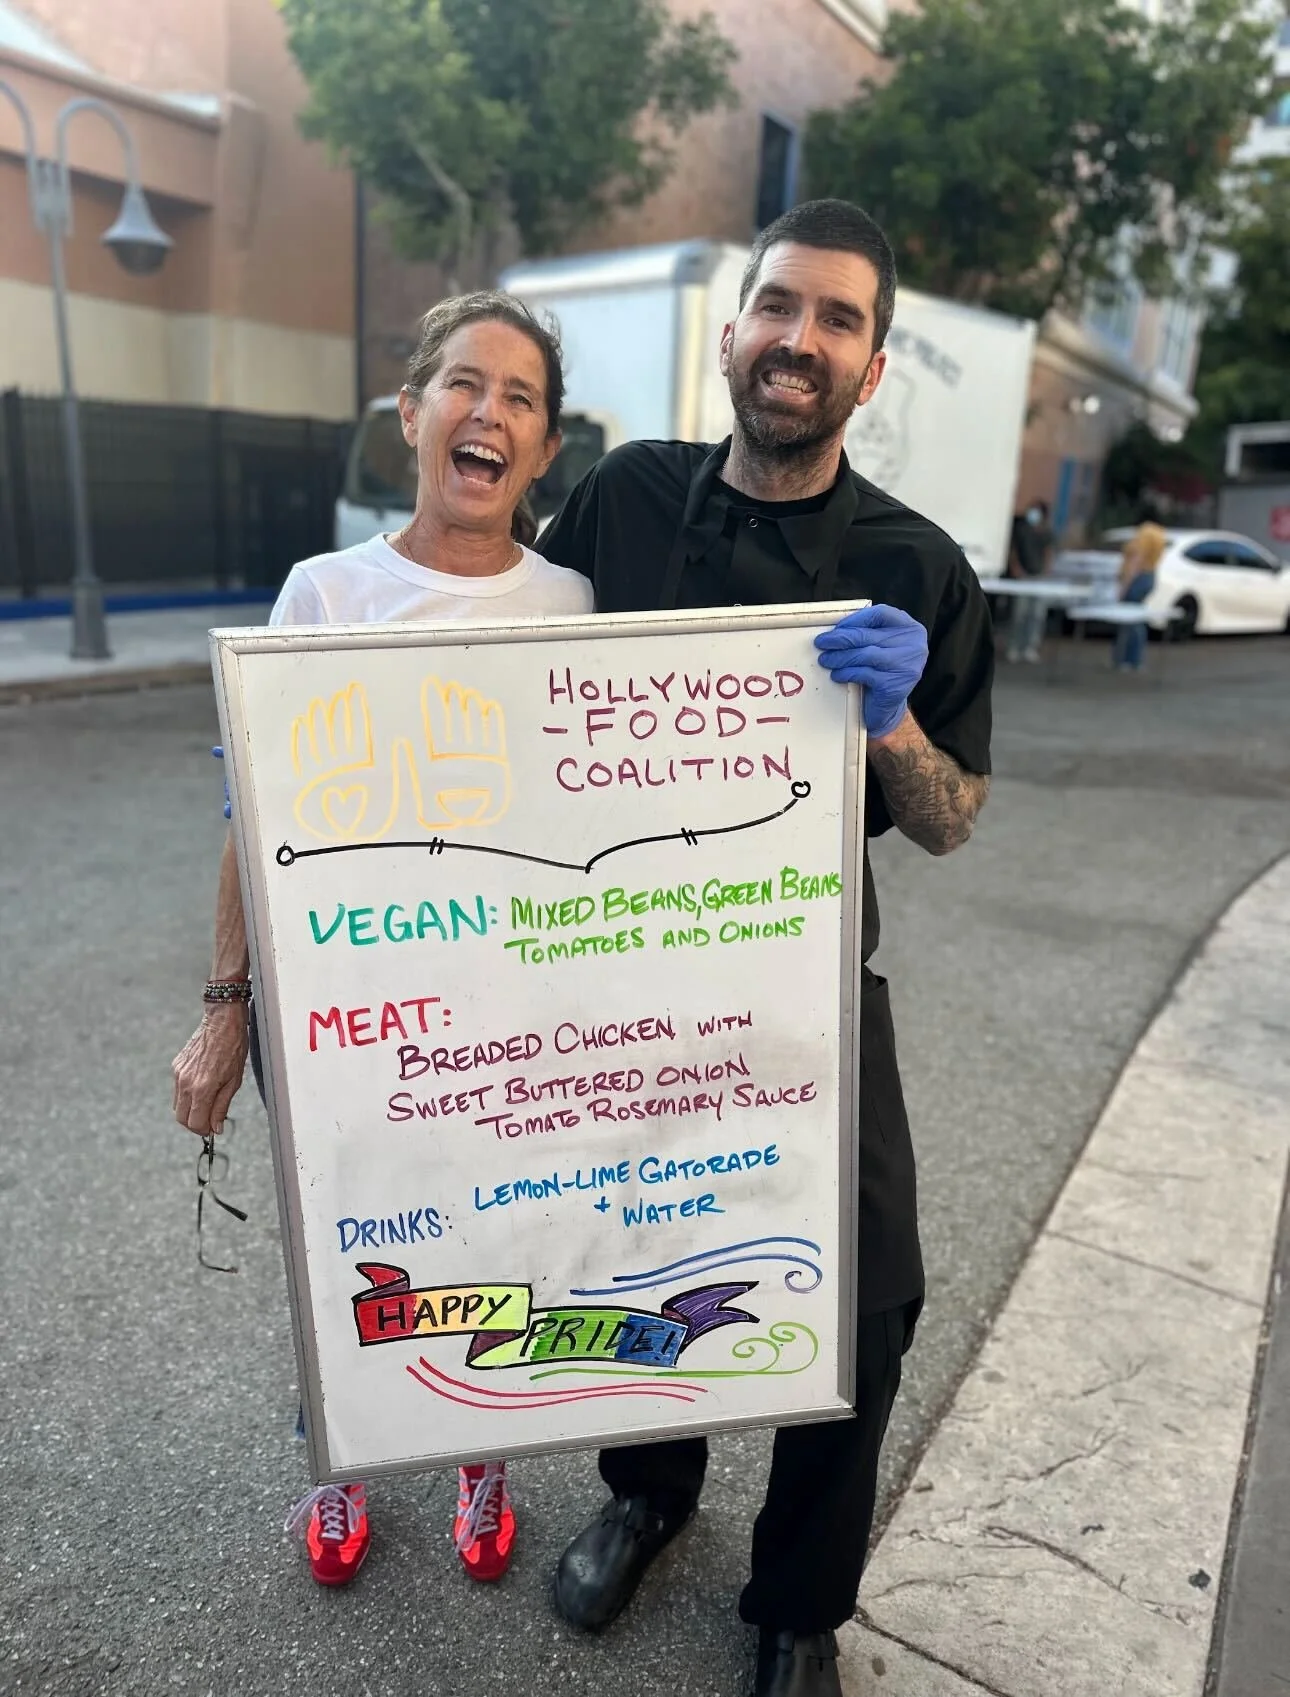 HOLLYWOOD
-FOOD-
COALITION
VEGAN: MIXED BEANS, GREEN BEANS
TOMATOES AND ONIONS
MEAT:
BREADED CHICKEN WITH
SWEET BUTTERED ONION
TOMATO ROSEMARY SAUCE
LEMON-LIME GATORADE
DRINKS: + WATER
HAPPY
PRIDE!